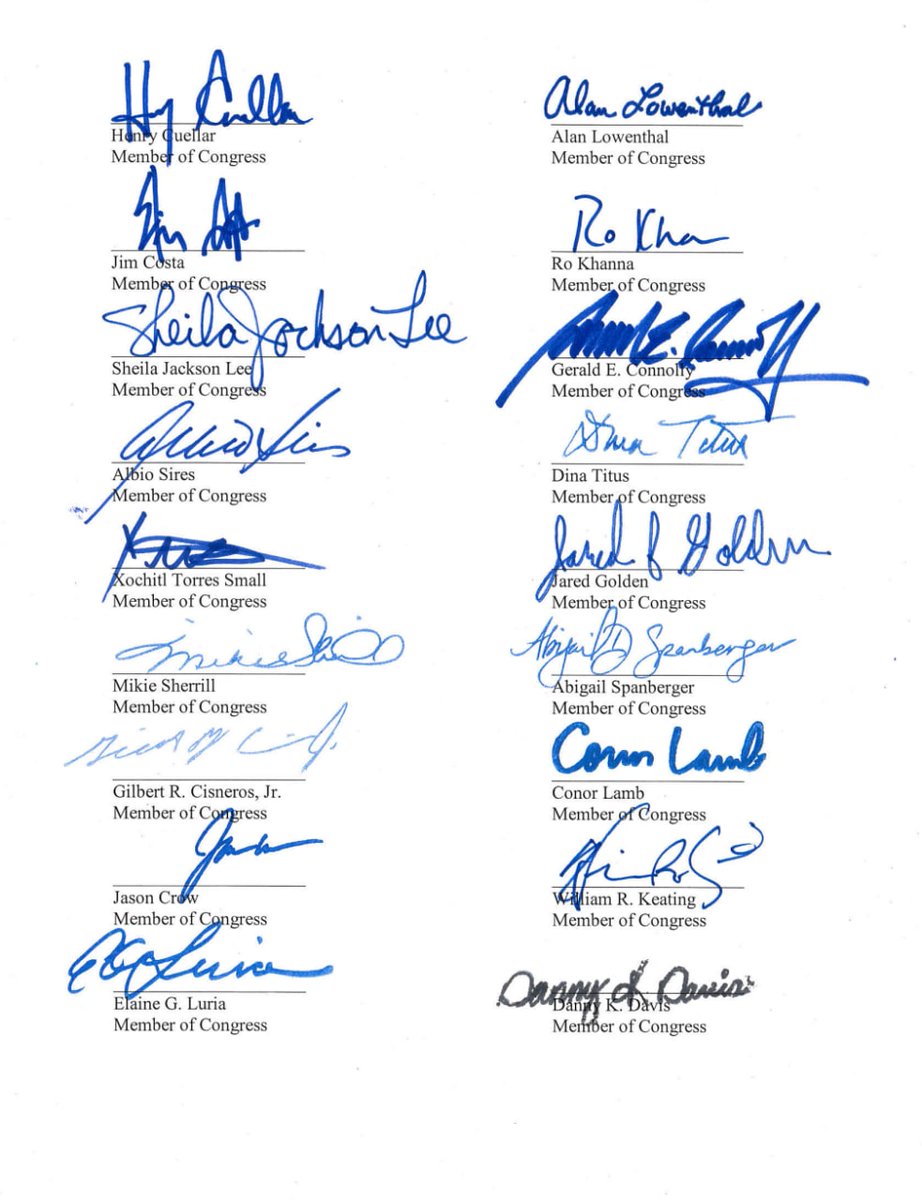 Hy Cuellar
Henry Cuellar
Member of Congress
Alan Lowenthal
Alan Lowenthal
Member of Congress
Jim
Jim Costa
Member of Congress
Ro Khanna
Ro Khanna
Member of Congress
Sheila Jackson Lee
Sheila Jackson Lee
Member of Congress
Gerald E. Connolly
Member of Congress
Albio Sires
Albio Sires
Member of Congress
Dina Titus
Dina Titus
Member of Congress
Xochitl Torres Small
Member of Congress
Jared F Golden
Jared Golden
Member of Congress
Mikie Sherrill
Mikie Sherrill
Member of Congress
Abigail D Spanberger
Abigail Spanberger
Member of Congress
Gilbert R. Cisneros, Jr.
Member of Congress
Conor Lamb
Conor Lamb
Member of Congress
Jason Crow
Member of Congress
William R. Keating
Member of Congress
Luria
Elaine G. Luria
Member of Congress
Danny K. Davis
Danny K. Davis
Member of Congress